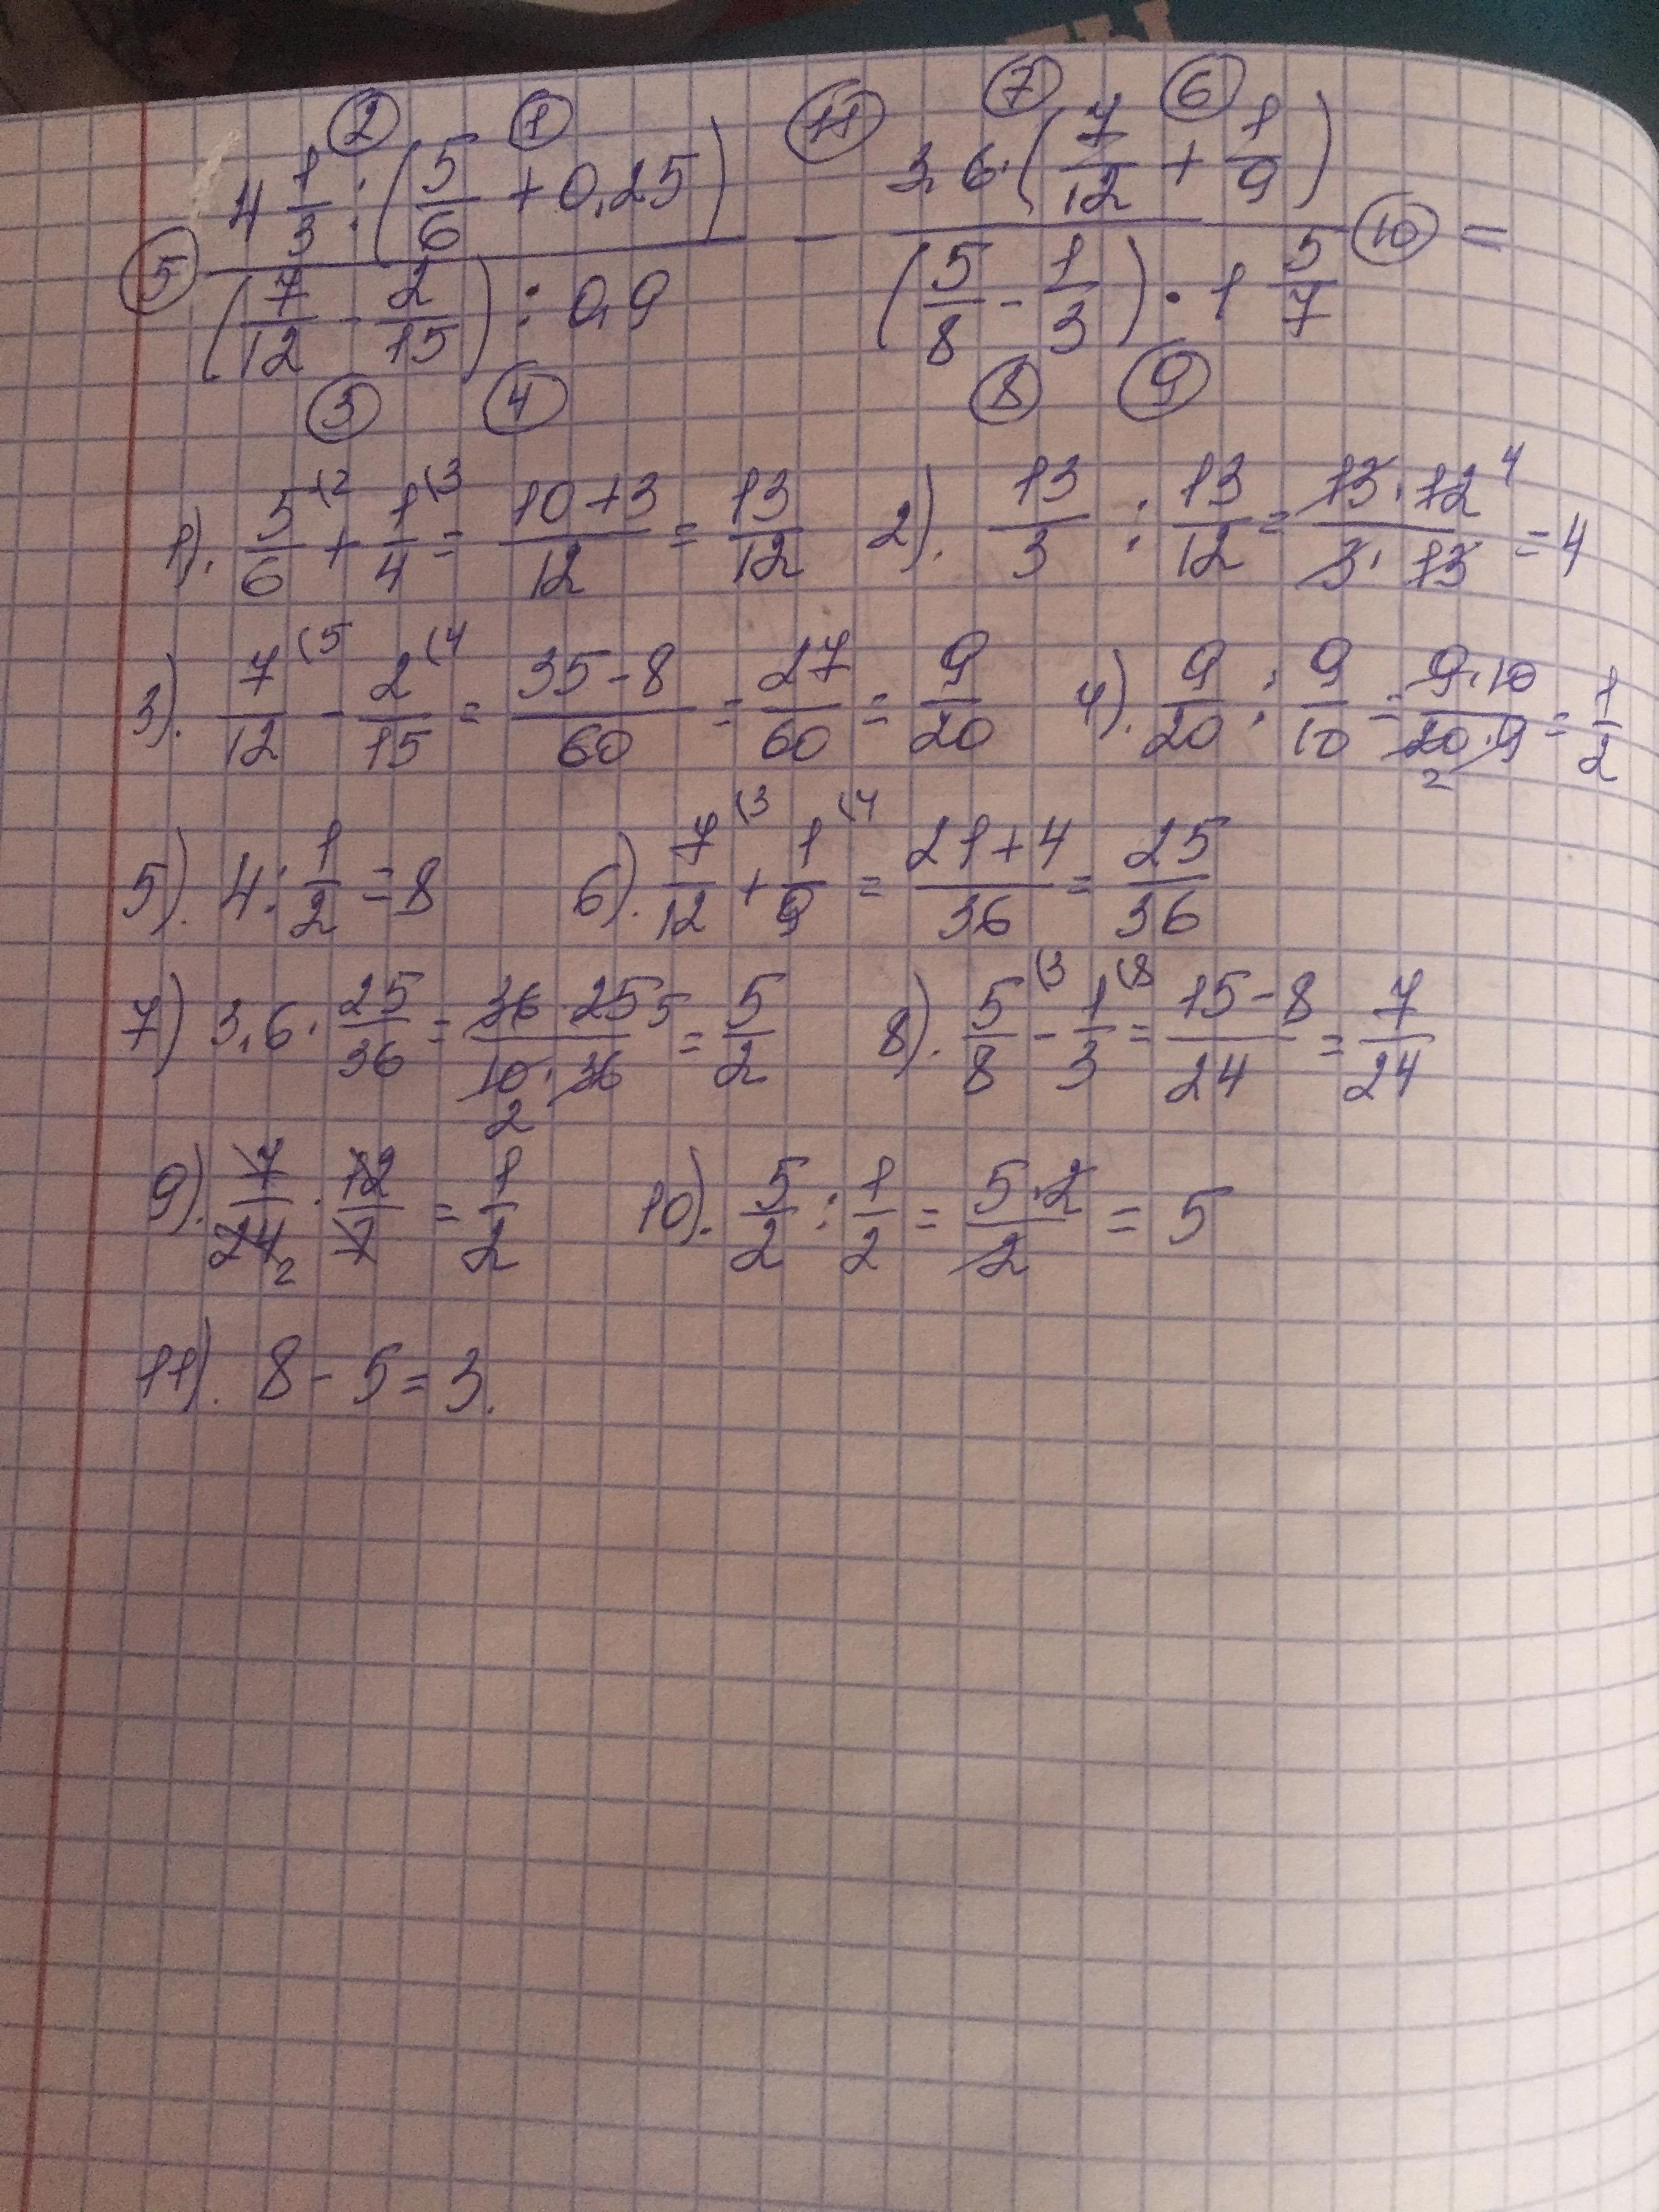 ТЫ
② ① ⑪ ⑦ ⑥
4 1/3 : (5/6 + 0,25) - 3,6 · (7/12 + 1/9) ⑩ =
⑤ (7/12 - 2/15) : 0,9 (5/8 - 1/3) · 1 5/7
③ ④ ⑧ ⑨
1). 5/6 (2 + 1/4 (3 = 10+3/12 = 13/12 2). 13/3 : 13/12 = 13·12 4/3·13 = 4
3). 7/12 (5 - 2/15 (4 = 35-8/60 = 27/60 = 9/20 4). 9/20 : 9/10 = 9·10/20·9 2 = 1/2
5). 4 : 1/2 = 8 6). 7/12 (3 + 1/9 (4 = 21+4/36 = 25/36
7) 3,6 · 25/36 = 36·25 5/10·36 2 = 5/2 8). 5/8 (3 - 1/3 (8 = 15-8/24 = 7/24
9). 7/24 2 · 12/7 = 1/2 10). 5/2 : 1/2 = 5·2/2 = 5
11). 8 - 5 = 3.